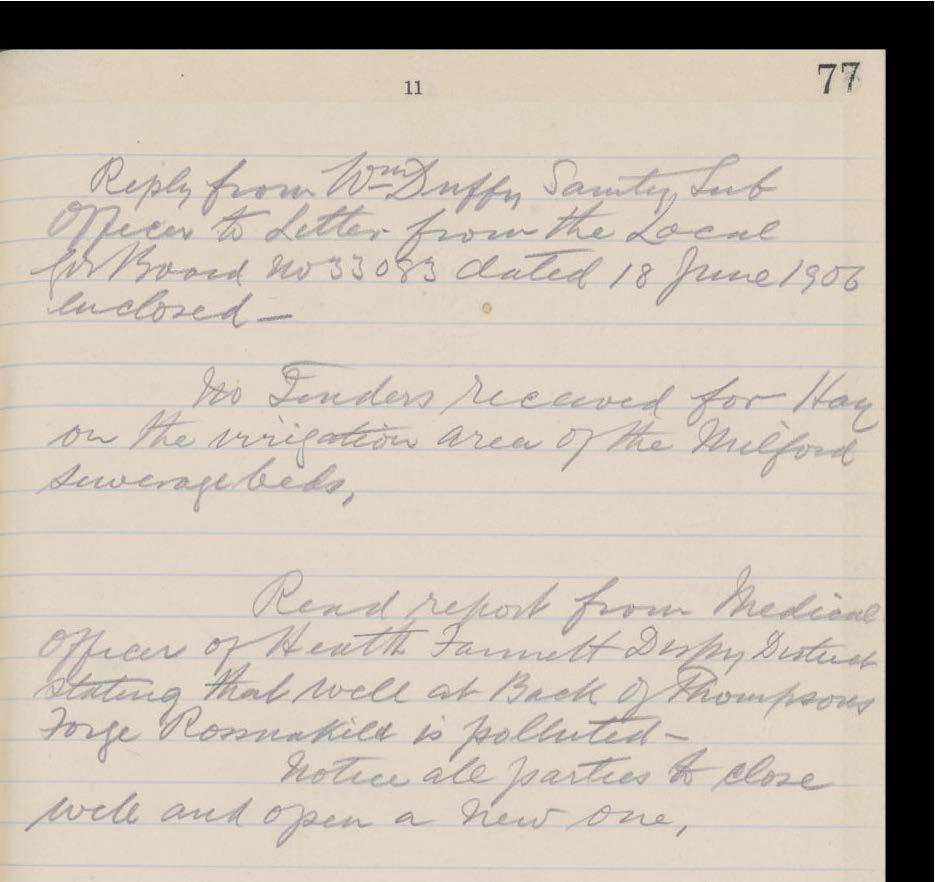 11
77
Reply from Wm Duffy Sanity Sub
Officer to Letter from the Local
Gov Board No 33083 dated 18 June 1906
enclosed —
No Tenders received for Hay
on the irrigation area of the Milford
sewerage beds,
Read report from Medical
Officer of Health Fannett Dispy District
stating that well at Back of Thompsons
Forge Rossnakill is polluted —
Notice all parties to close
well and open a new one,